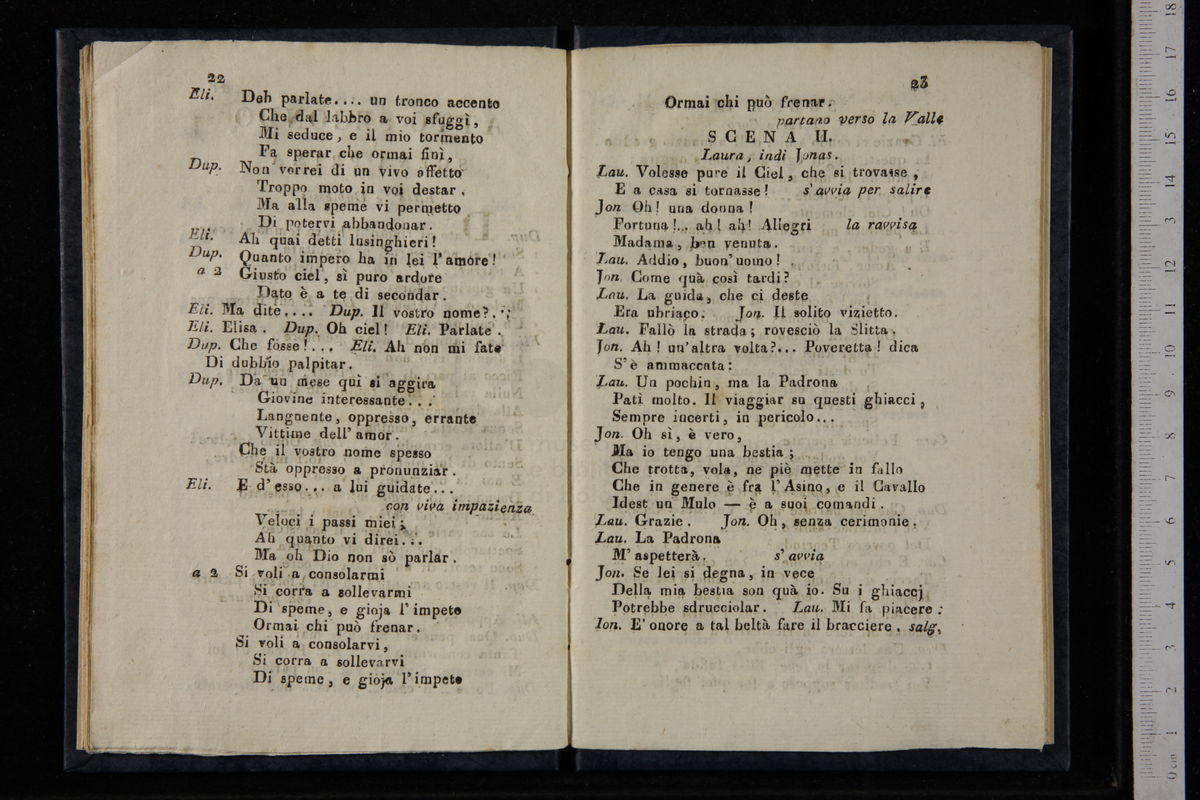 22
Eli. Deh parlate.... un tronco accento
Che dal labbro a voi sfuggì,
Mi seduce, e il mio tormento
Fa sperar che ormai finì,
Dup. Non vorrei di un vivo affetto
Troppo moto in voi destar,
Ma alla speme vi permetto
Di potervi abbandonar.
Eli. Ah quai detti lusinghieri!
Dup. Quanto impero ha in lei l'amore!
a 2 Giusto ciel, sì puro ardore
Dato è a te di secondar.
Eli. Ma dite.... Dup. Il vostro nome?..
Eli. Elisa. Dup. Oh ciel! Eli. Parlate.
Dup. Che fosse!... Eli. Ah non mi fate
Di dubbio palpitar.
Dup. Da un mese quì si aggira
Giovine interessante...
Languente, oppresso, errante
Vittime dell'amor.
Che il vostro nome spesso
Stà oppresso a pronunziar.
Eli. E d'esso... a lui guidate...
con viva impazienza
Veloci i passi miei;
Ah quanto vi direi...
Ma oh Dio non sò parlar.
a 2 Si voli a consolarmi
Si corra a sollevarmi
Di speme, e gioja l'impeto
Ormai chi può frenar.
Si voli a consolarvi,
Si corra a sollevarvi
Di speme, e gioja l'impeto
23
Ormai chi può frenar.
partano verso la Valle
SCENA II.
Laura, indi Jonas.
Lau. Volesse pure il Ciel, che si trovasse,
E a casa si tornasse! s'avvia per salire
Jon Oh! una donna!
Fortuna!... ah! ah! Allegri la ravvisa
Madama, ben venuta.
Lau. Addio, buon'uomo!
Jon. Come quà così tardi?
Lau. La guida, che ci deste
Era ubriaco. Jon. Il solito vizietto.
Lau. Fallò la strada; rovesciò la Slitta.
Jon. Ah! un'altra volta?... Poveretta! dica
S'è ammaccata:
Lau. Un pochin, ma la Padrona
Patì molto. Il viaggiar su questi ghiacci,
Sempre incerti, in pericolo...
Jon. Oh sì, è vero,
Ma io tengo una bestia;
Che trotta, vola, ne piè mette in fallo
Che in genere è fra l'Asino, e il Cavallo
Idest un Mulo — è a suoi comandi.
Lau. Grazie. Jon. Oh, senza cerimonie.
Lau. La Padrona
M'aspetterà. s'avvia
Jon. Se lei si degna, in vece
Della mia bestia son quà io. Su i ghiaccj
Potrebbe sdrucciolar. Lau. Mi fa piacere:
Ion. E' onore a tal beltà fare il bracciere. salg.
0 cm 1 2 3 4 5 6 7 8 9 10 11 12 13 14 15 16 17 18